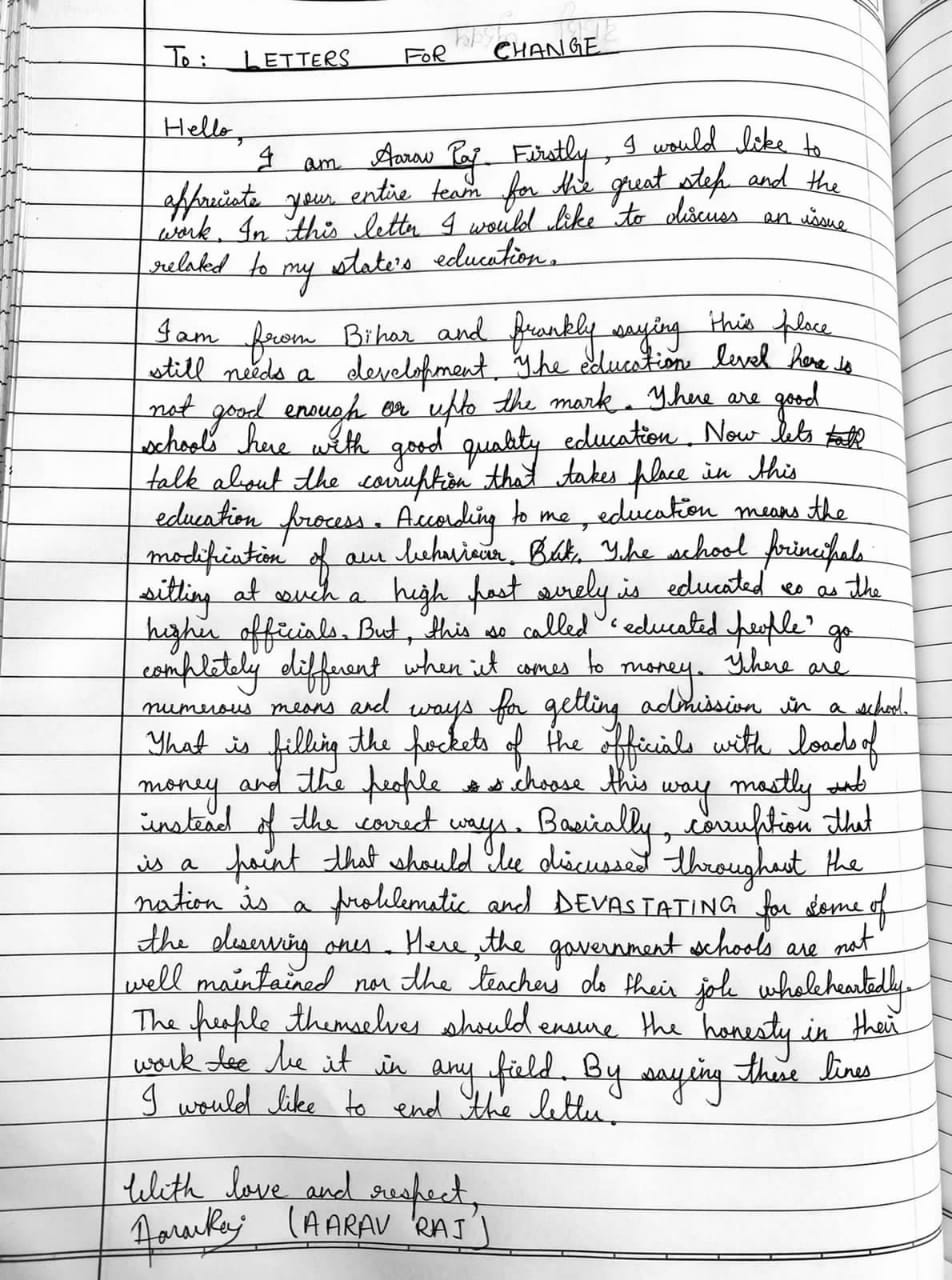 To: LETTERS FOR CHANGE
Hello,
I am Aarav Raj. Firstly, I would like to
appreciate your entire team for the great step and the
work. In this letter I would like to discuss an issue
related to my state's education.
I am from Bihar and frankly saying this place
still needs a development. The education level here is
not good enough or upto the mark. There are good
schools here with good quality education. Now lets
talk about the corruption that takes place in this
education process. According to me, education means the
modification of our behaviour. But, The school principals
sitting at such a high post surely is educated so as the
higher officials. But, this so called "educated people" go
completely different when it comes to money. There are
numerous means and ways for getting admission in a school.
That is filling the pockets of the officials with loads of
money and the people choose this way mostly
instead of the correct ways. Basically, corruption that
is a point that should be discussed throughout the
nation is a problematic and DEVASTATING for some of
the deserving ones. Here, the government schools are not
well maintained nor the teachers do their job wholeheartedly.
The people themselves should ensure the honesty in their
work be it in any field. By saying these lines
I would like to end the letter.
With love and respect,
Aarav Raj (AARAV RAJ)